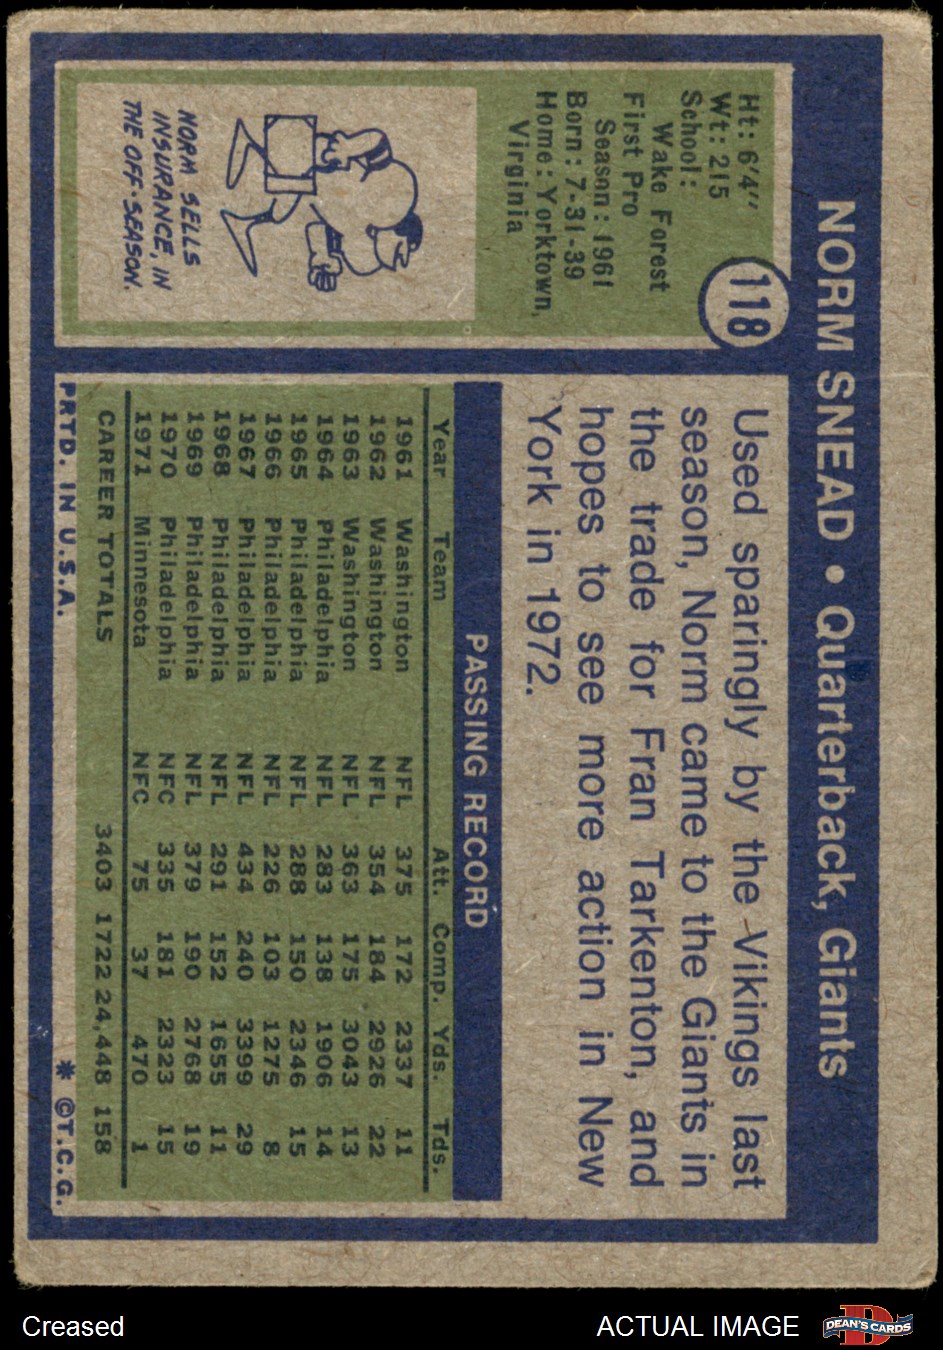 NORM SNEAD • Quarterback, Giants
118
Ht: 6'4"
Wt: 215
School:
Wake Forest
First Pro
Season: 1961
Born: 7-31-39
Home: Yorktown,
Virginia
NORM SELLS
INSURANCE, IN
THE OFF-SEASON.
Used sparingly by the Vikings last
season, Norm came to the Giants in
the trade for Fran Tarkenton, and
hopes to see more action in New
York in 1972.
PASSING RECORD
Year Team Att. Comp. Yds. Tds.
1961 Washington NFL 375 172 2337 11
1962 Washington NFL 354 184 2926 22
1963 Washington NFL 363 175 3043 13
1964 Philadelphia NFL 283 138 1906 14
1965 Philadelphia NFL 288 150 2346 15
1966 Philadelphia NFL 226 103 1275 8
1967 Philadelphia NFL 434 240 3399 29
1968 Philadelphia NFL 291 152 1655 11
1969 Philadelphia NFL 379 190 2768 19
1970 Philadelphia NFC 335 181 2323 15
1971 Minnesota NFC 75 37 470 1
CAREER TOTALS 3403 1722 24,448 158
PRTD. IN U.S.A. * ©T.C.G.
Creased ACTUAL IMAGE DEAN'S CARDS